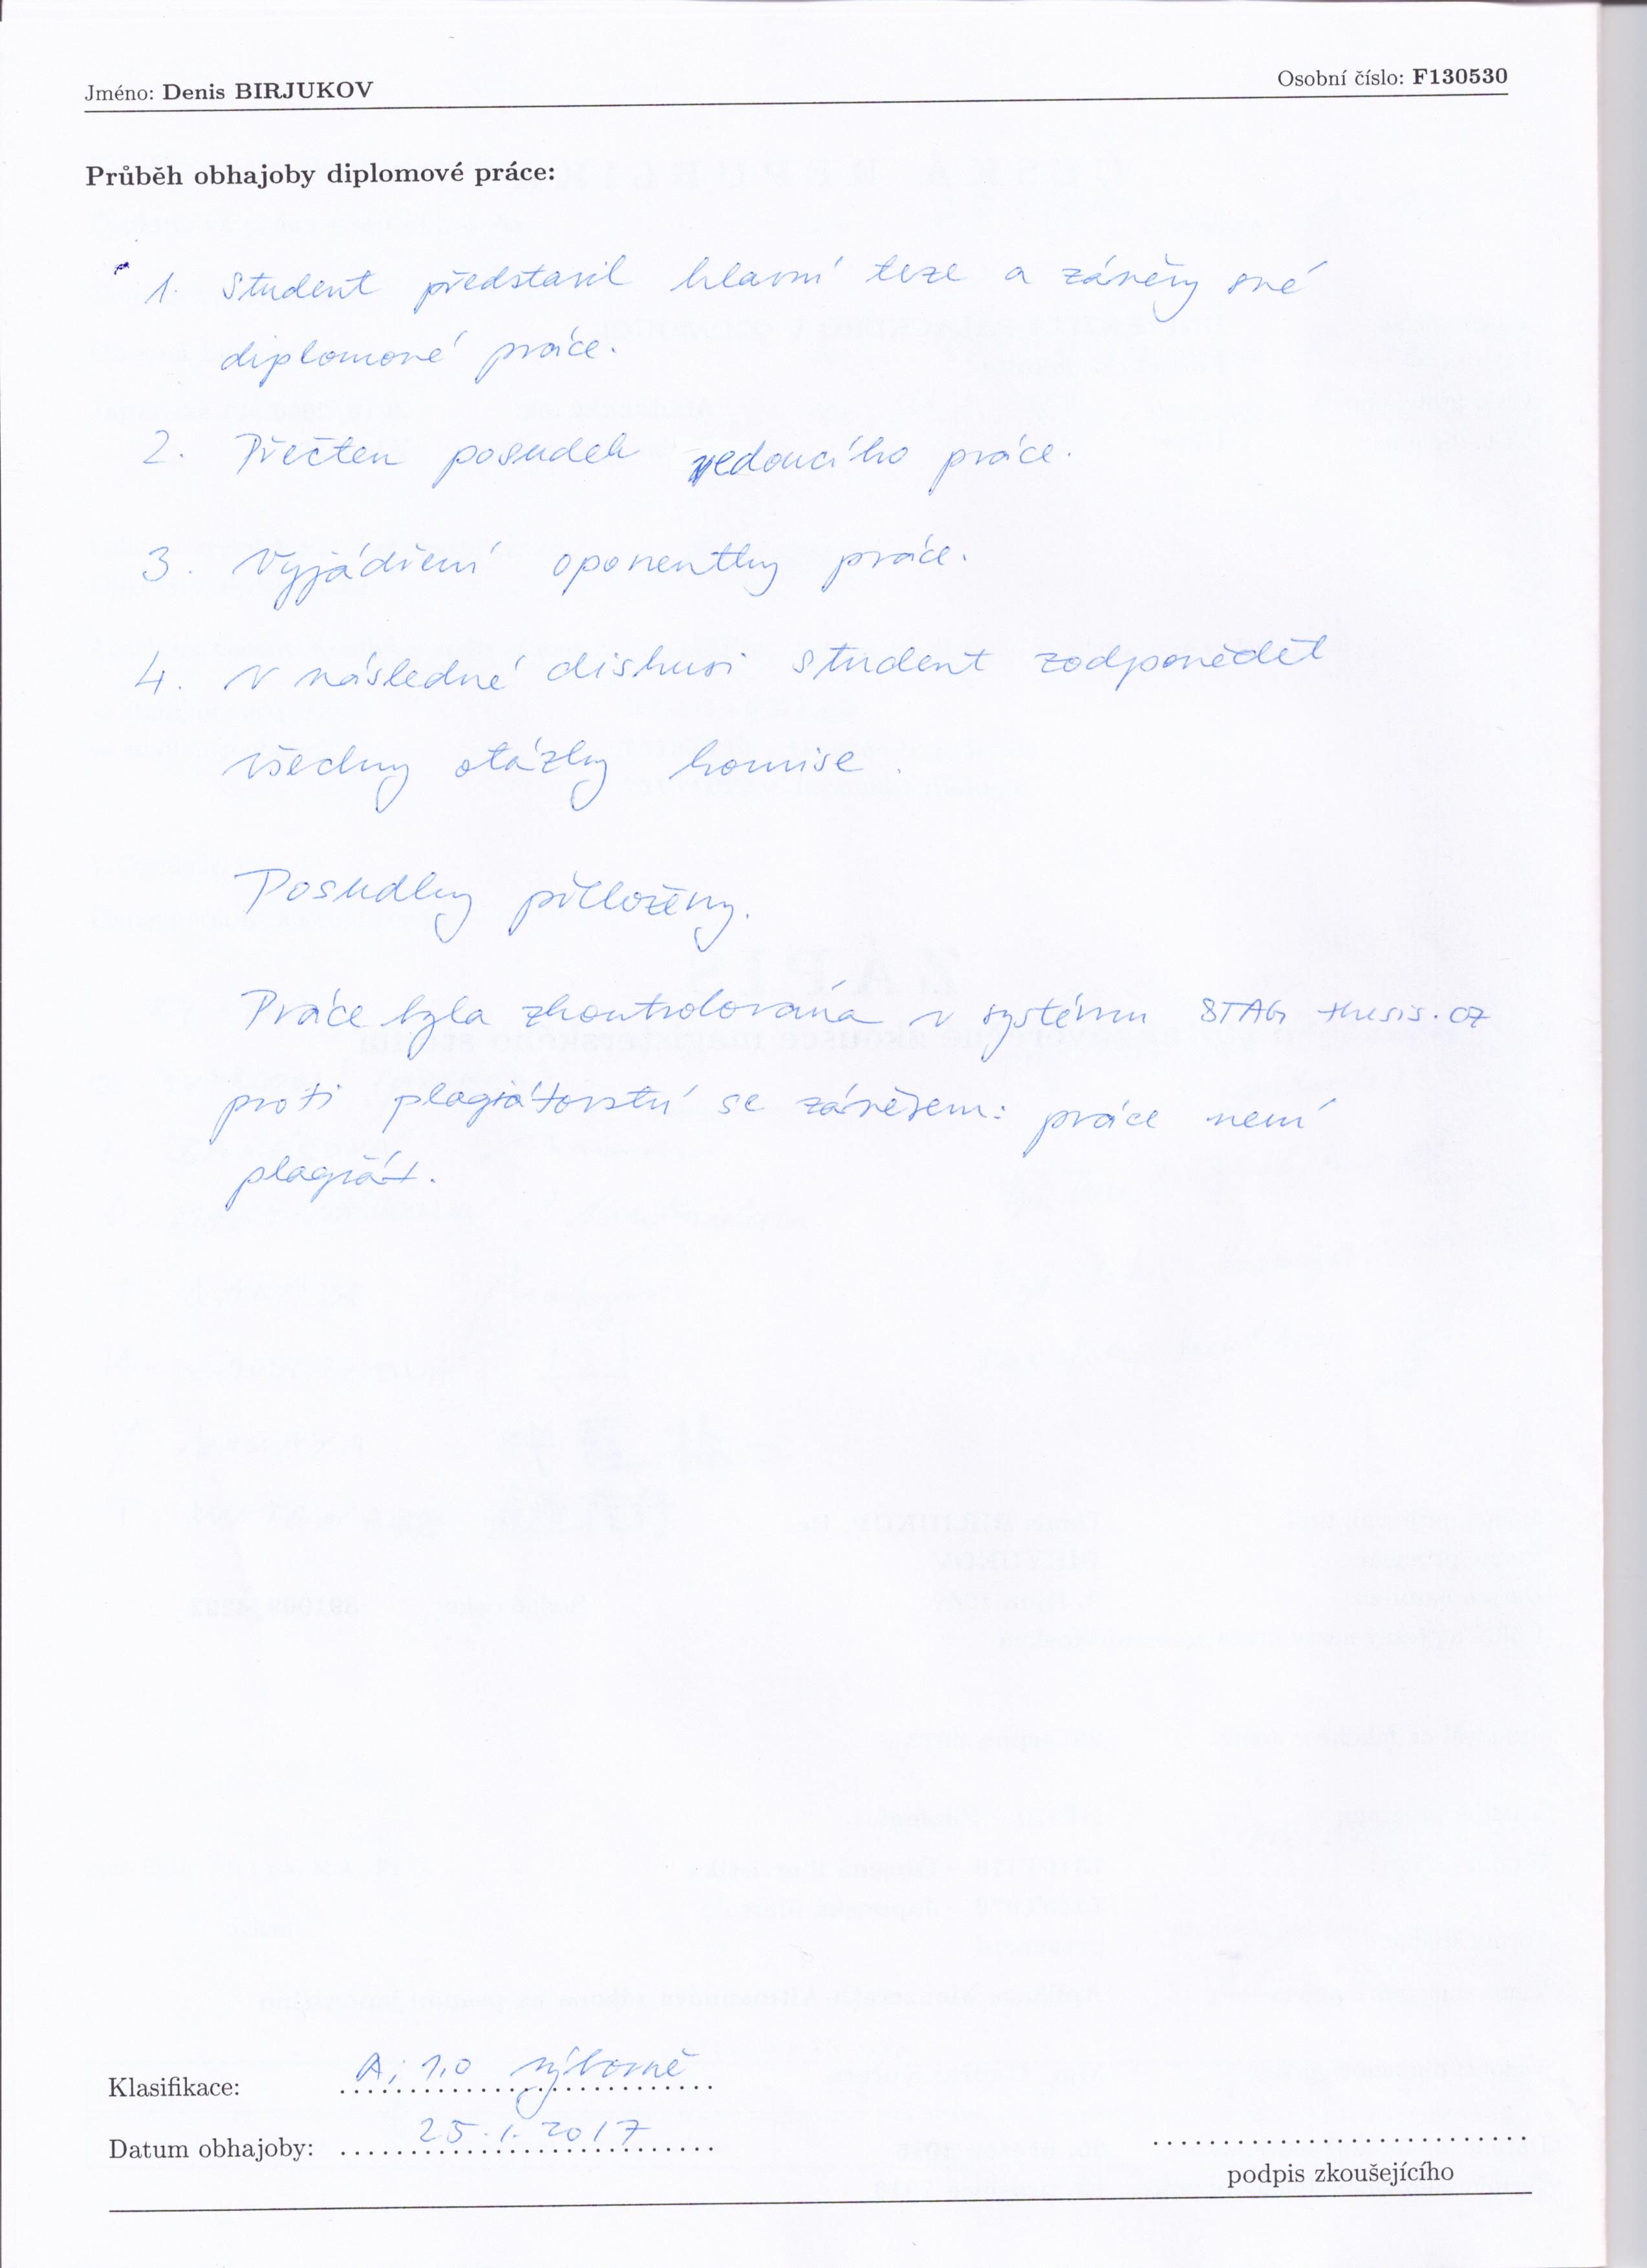 Jméno: Denis BIRJUKOV Osobní číslo: F130530
Průběh obhajoby diplomové práce:
1. Student představil hlavní teze a závěry své
diplomové práce.
2. Přečten posudek vedoucího práce.
3. Vyjádření oponentky práce.
4. V následné diskusi student zodpověděl
všechny otázky komise.
Posudky přiloženy.
Práce byla zkontrolována v systému STAG thesis.cz
proti plagiátorství se závěrem: práce není
plagiát.
Klasifikace: A; 1,0 výborně
Datum obhajoby: 25.1.2017
podpis zkoušejícího